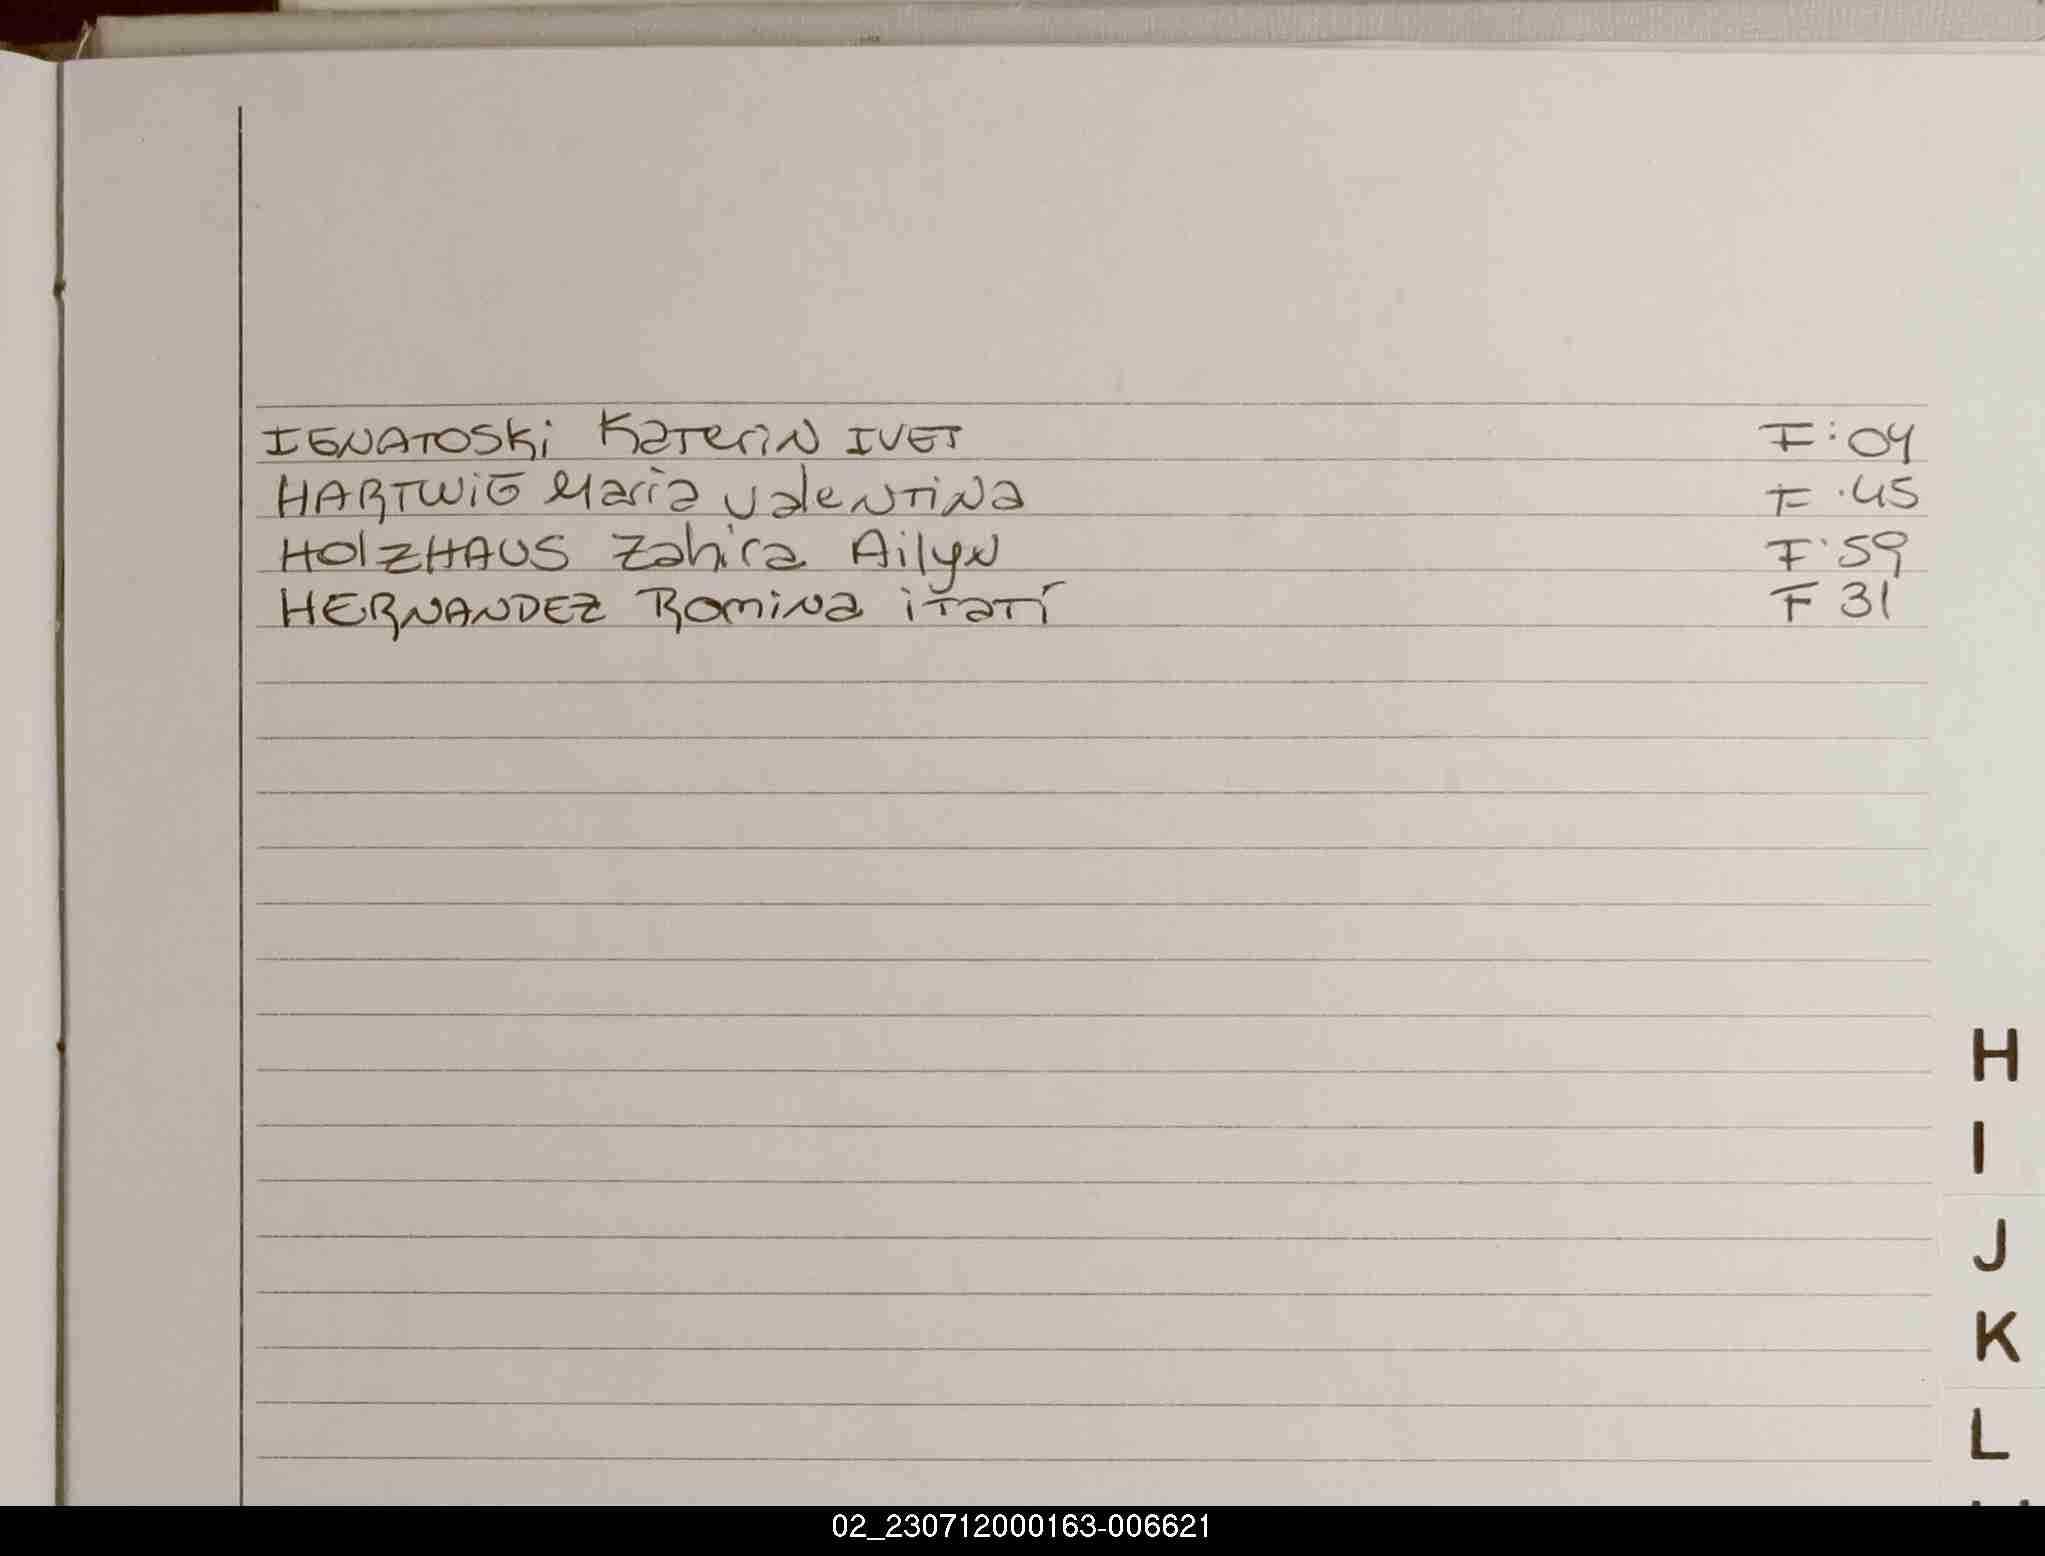 IGNATOSKi Katerin IVET F:04
HARTWIG Maria Valentina F.45
HOlZHAUS Zahira Ailyn F.59
HERNANDEZ Romina itatí F 31
H
I
J
K
L
02_230712000163-006621